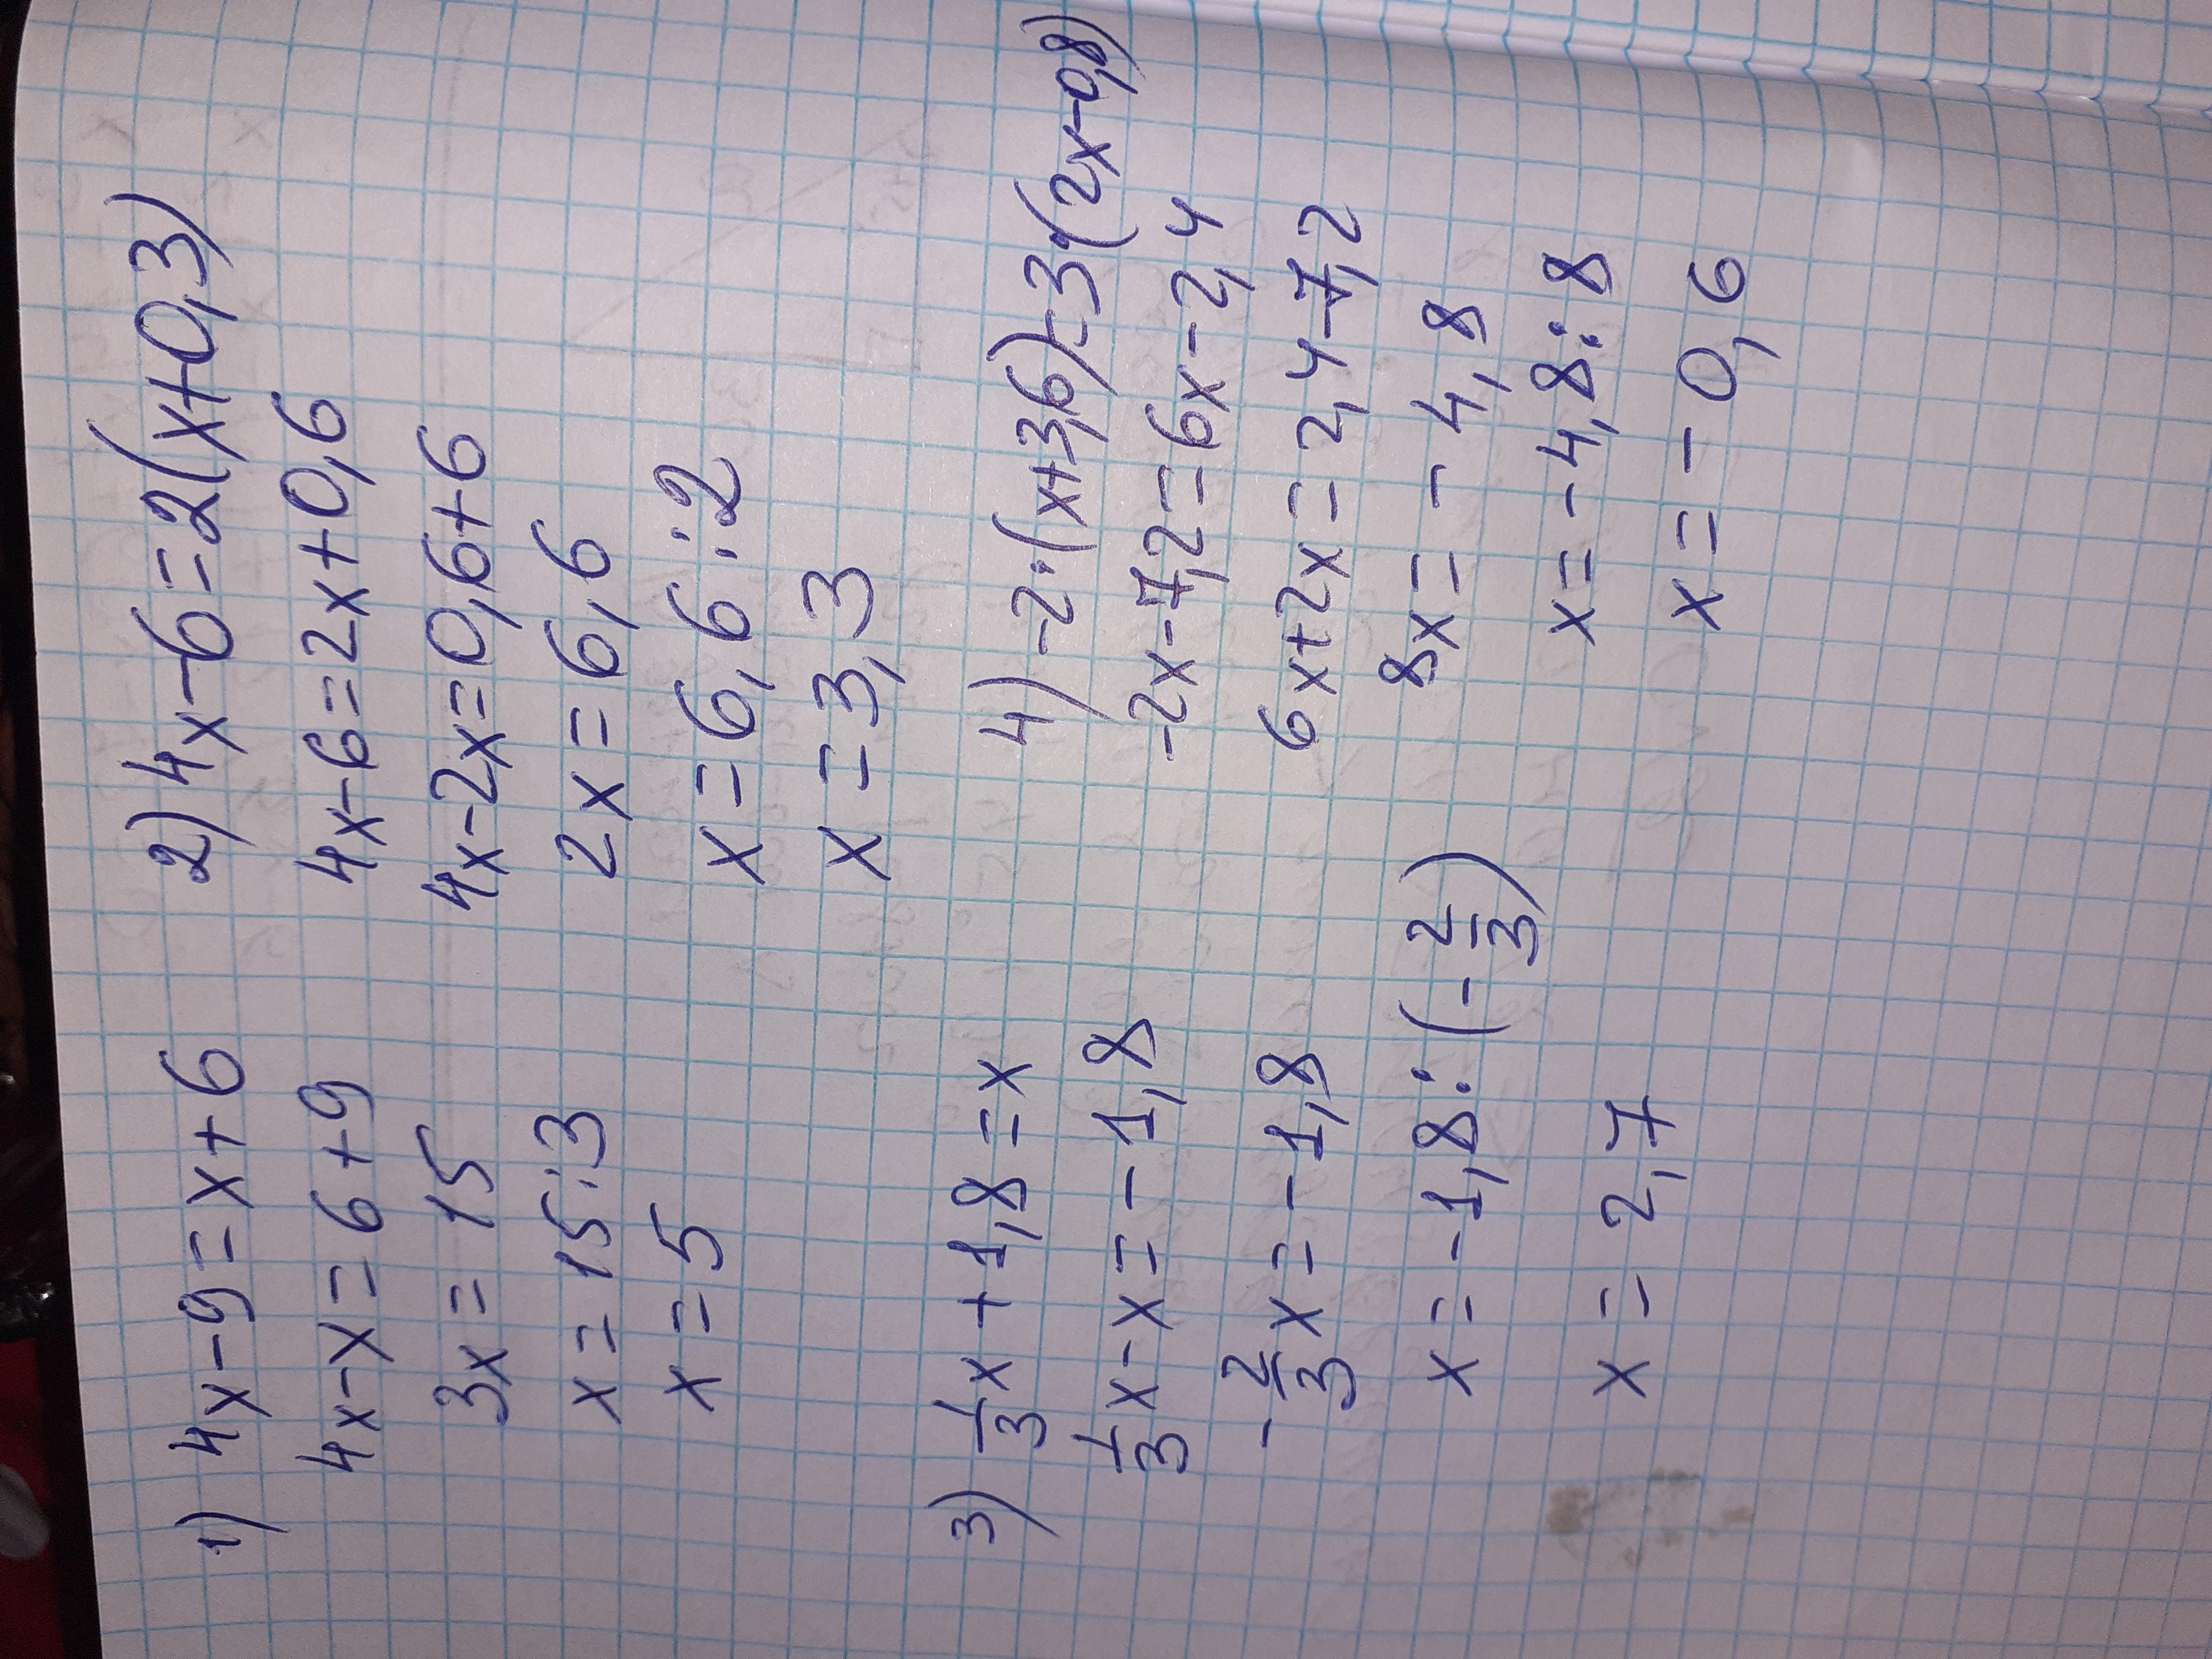 1) 4x-9=x+6
4x-x=6+9
3x=15
x=15:3
x=5
2) 4x-6=2(x+0,3)
4x-6=2x+0,6
4x-2x=0,6+6
2x=6,6
x=6,6:2
x=3,3
3) 1/3x+1,8=x
1/3x-x=-1,8
-2/3x=-1,8
x=-1,8:(-2/3)
x=2,7
4) -2·(x+3,6)=3·(2x-0,8)
-2x-7,2=6x-2,4
6x+2x=2,4-7,2
8x=-4,8
x=-4,8:8
x=-0,6